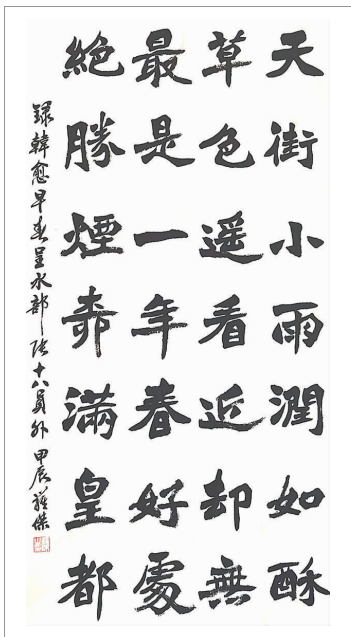 天街小雨潤如酥
草色遥看近却無
最是一年春好處
絕勝煙柳滿皇都
録韓愈早春呈水部張十八員外 甲辰 傑